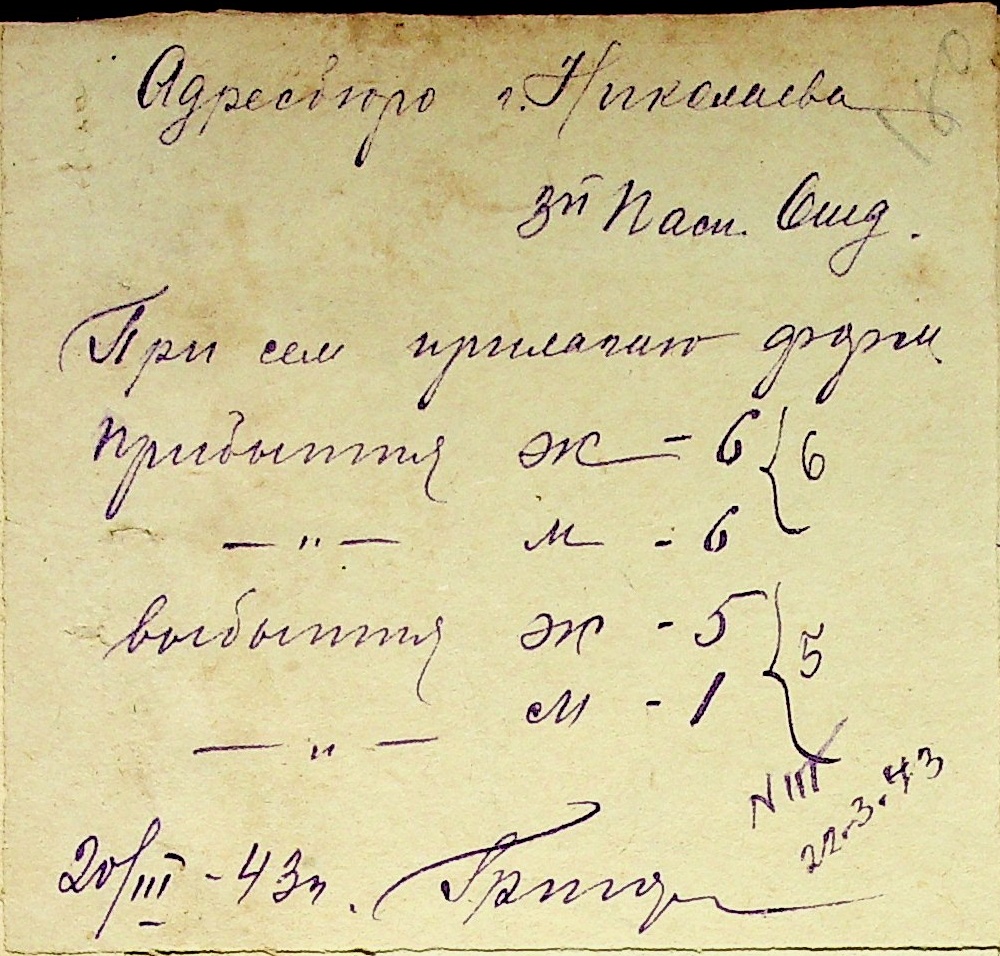 Адресбюро г. Николаева
3й Пасп. Отд.
При сем прилагаю форм
прибиття ж - 6 } 6
— " — м - 6
вибиття ж - 5 } 5
— " — м - 1
22.3.43
20/III - 43 г.